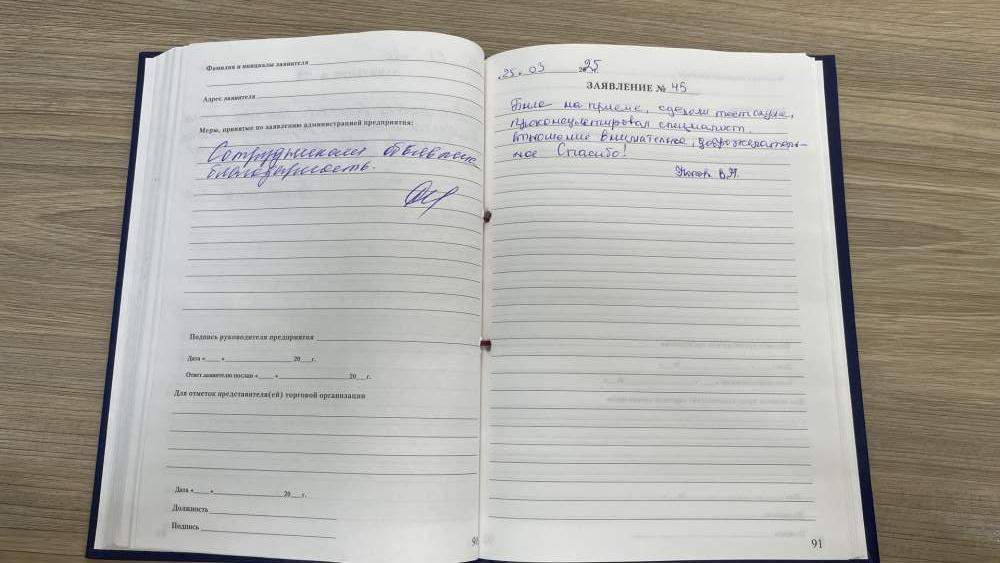 Фамилия и инициалы заявителя
Адрес заявителя
Меры, принятые по заявлению администрацией предприятия:
Сотрудникам объявлена
благодарность.
Подпись руководителя предприятия
Дата « » 20 г.
Ответ заявителю послан « » 20 г.
Для отметок представителя(ей) торговой организации
Дата « » 20 г.
Должность
Подпись
90
25. 03 2025
ЗАЯВЛЕНИЕ № 45
Была на приеме, сделали тест слуха,
проконсультировал специалист.
Отношение внимательное, доброжелатель-
ное Спасибо!
В.И.
91